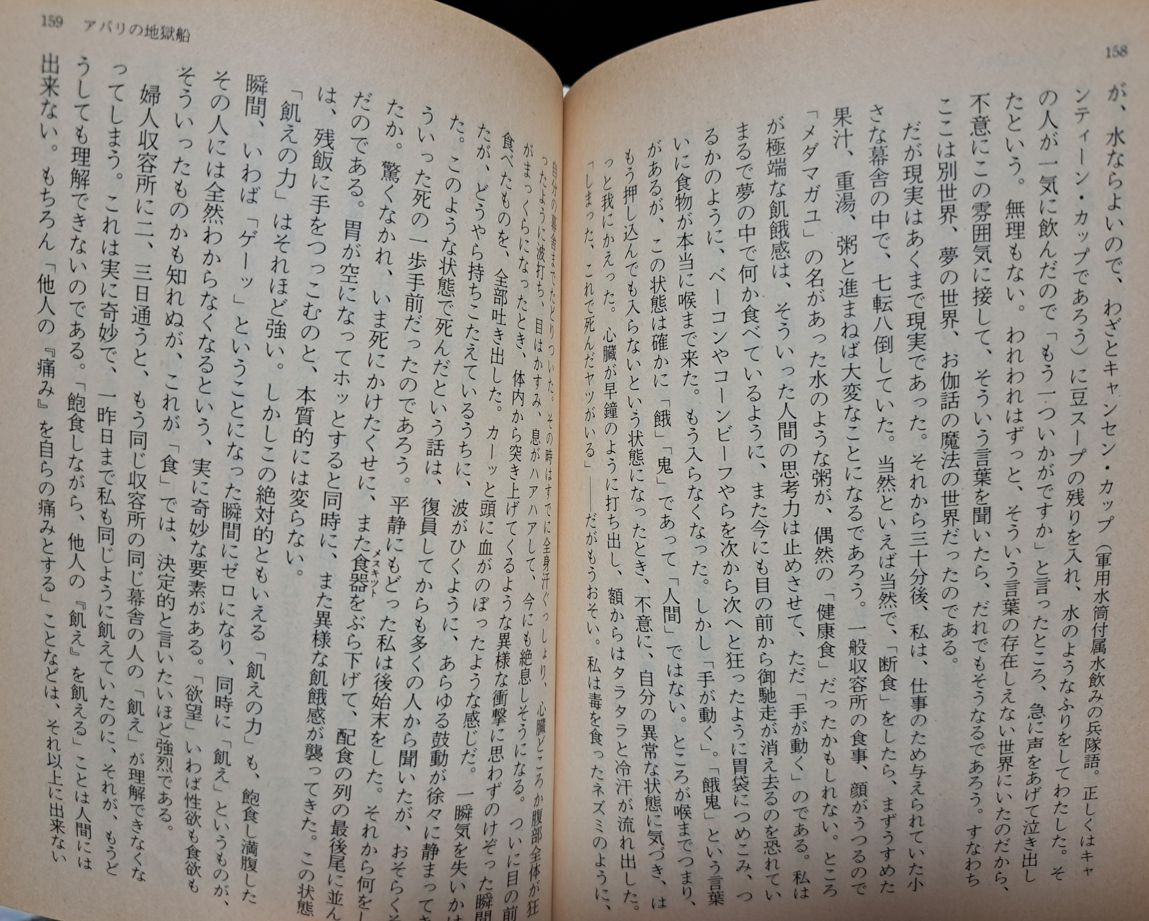 158
が、水ならよいので、わざとキャンセン・カップ（軍用水筒付属水飲みの兵隊語。正しくはキャ
ンティーン・カップであろう）に豆スープの残りを入れ、水のようなふりをしてわたした。そ
の人が一気に飲んだので「もう一ついかがですか」と言ったところ、急に声をあげて泣き出し
たという。無理もない。われわれはずっと、そういう言葉の存在しえない世界にいたのだから、
不意にこの雰囲気に接して、そういう言葉を聞いたら、だれでもそうなるであろう。すなわち
ここは別世界、夢の世界、お伽話の魔法の世界だったのである。
だが現実はあくまで現実であった。それから三十分後、私は、仕事のため与えられていた小
さな幕舎の中で、七転八倒していた。当然といえば当然で、「断食」をしたら、まずうすめた
果汁、重湯、粥と進まねば大変なことになるであろう。一般収容所の食事、顔がうつるので
「メダマガユ」の名があった水のような粥が、偶然の「健康食」だったかもしれない。ところ
が極端な飢餓感は、そういった人間の思考力は止めさせて、ただ「手が動く」のである。私は
まるで夢の中で何か食べているように、また今にも目の前から御馳走が消え去るのを恐れてい
るかのように、ベーコンやコーンビーフやらを次から次へと狂ったように胃袋につめこみ、つ
いに食物が本当に喉まで来た。もう入らなくなった。しかし「手が動く」。「餓鬼」という言葉
があるが、この状態は確かに「餓」「鬼」であって「人間」ではない。ところが喉までつまり、
もう押し込んでも入らないという状態になったとき、不意に、自分の異常な状態に気づき、は
っと我にかえった。心臓が早鐘のように打ち出し、額からはタラタラと冷汗が流れ出した。
「しまった、これで死んだヤツがいる」――だがもうおそい。私は毒を食ったネズミのように、
159 アパリの地獄船
自分の幕舎までたどりついた。その時はすでに全身汗ぐっしょり、心臓どころか腹部全体が狂
ったように波打ち、目はかすみ、息がハアハアして、今にも絶息しそうになる。ついに目の前
がまっくらになったとき、体内から突き上げてくるような異様な衝撃に思わずのけぞった瞬間
食べたものを、全部吐き出した。カーッと頭に血がのぼったような感じだ。一瞬気を失いか
たが、どうやら持ちこたえているうちに、波がひくように、あらゆる鼓動が徐々に静まって
た。このような状態で死んだという話は、復員してからも多くの人から聞いたが、おそらく
ういった死の一歩手前だったのであろう。平静にもどった私は後始末をした。それから何を
たか。驚くなかれ、いま死にかけたくせに、また食器をぶら下げて、配食の列の最後尾に並ん
メスキット
だのである。胃が空になってホッとすると同時に、また異様な飢餓感が襲ってきた。この状態
は、残飯に手をつっこむのと、本質的には変らない。
「飢えの力」はそれほど強い。しかしこの絶対的ともいえる「飢えの力」も、飽食し満腹した
瞬間、いわば「ゲーッ」ということになった瞬間にゼロになり、同時に「飢え」というものが、
その人には全然わからなくなるという、実に奇妙な要素がある。「欲望」いわば性欲も食欲も
そういったものかも知れぬが、これが「食」では、決定的と言いたいほど強烈である。
婦人収容所に二、三日通うと、もう同じ収容所の同じ幕舎の人の「飢え」が理解できなくな
ってしまう。これは実に奇妙で、一昨日まで私も同じように飢えていたのに、それが、もうど
うしても理解できないのである。「飽食しながら、他人の『飢え』を飢える」ことは人間には
出来ない。もちろん「他人の『痛み』を自らの痛みとする」ことなどは、それ以上に出来ない